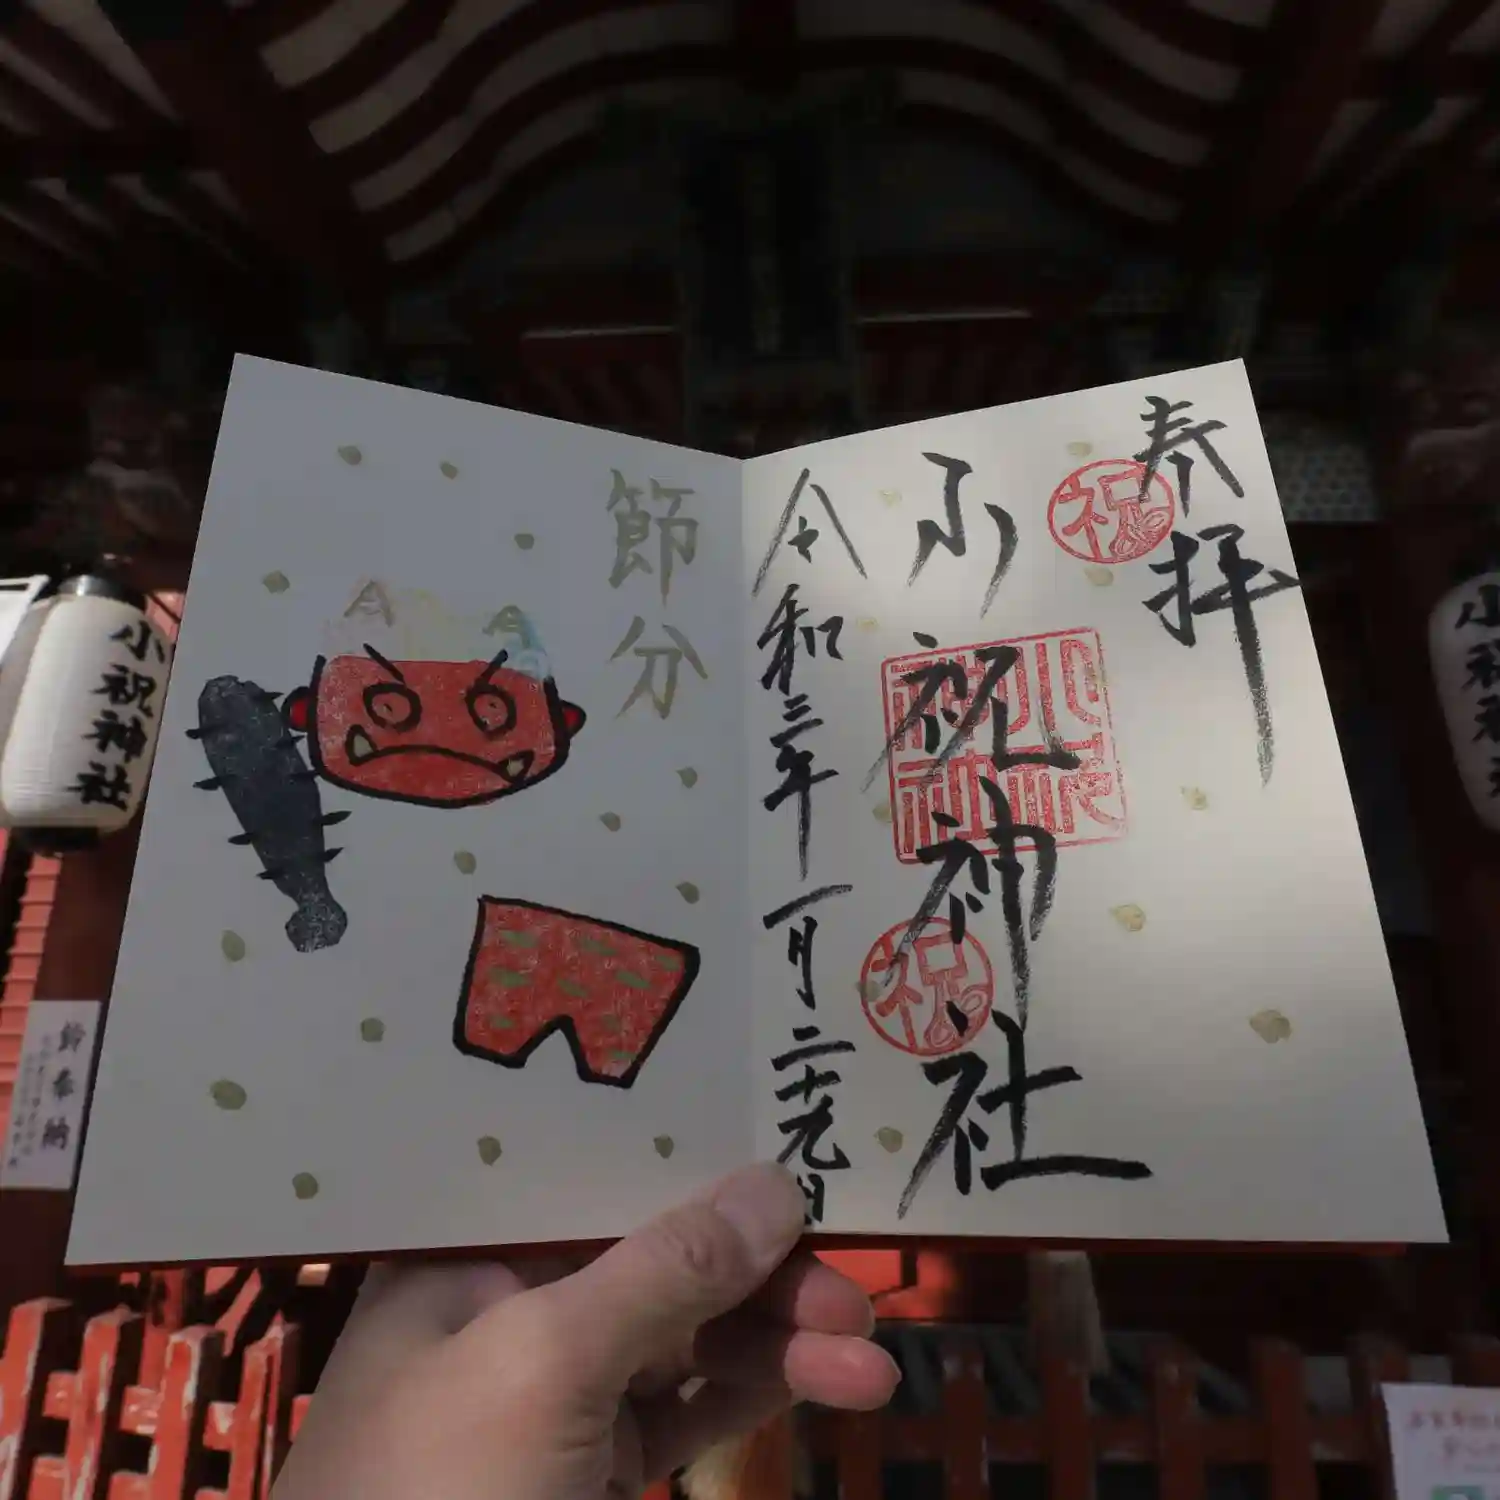 奉拝
祝
小祝神社
小祝神社
祝
令和三年一月二十九日
節分
小祝神社
鈴奉納